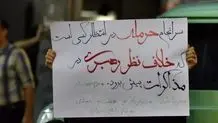 سرانجام حرمله در انتظار کسی است
که خلاف نظر رهبری در
مذاکرات پیش برود.